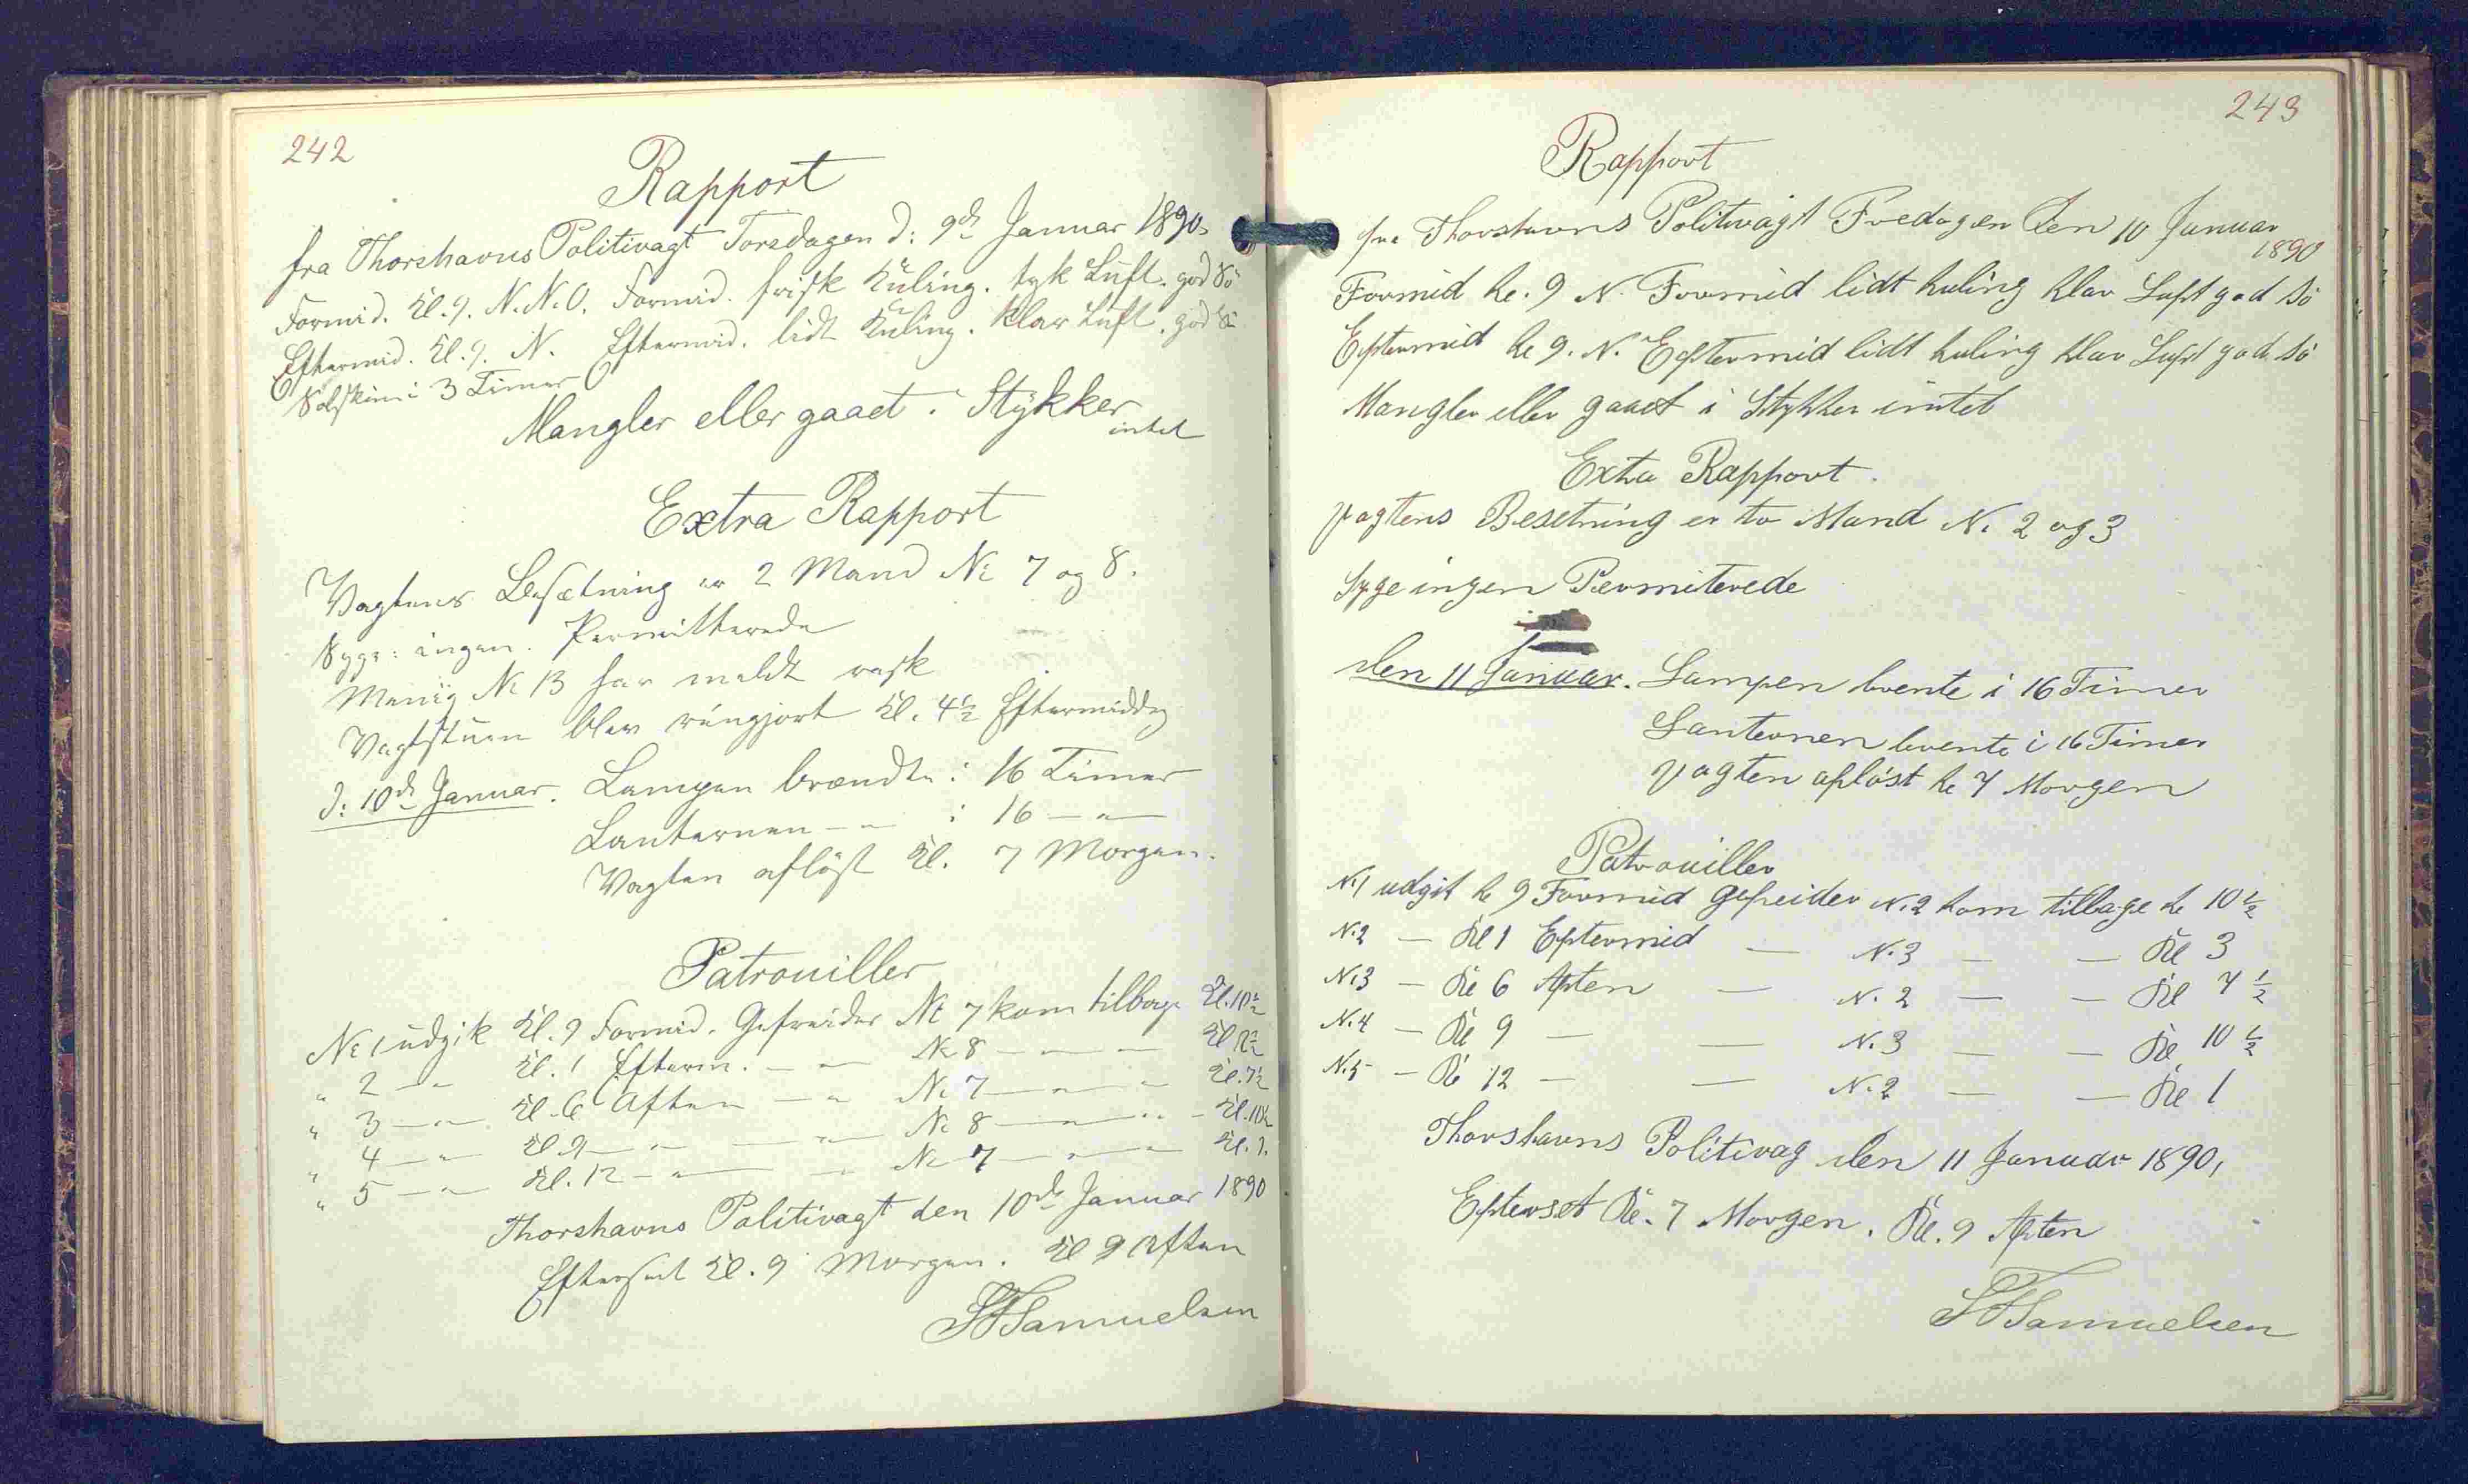 242
Rapport
fra Thorshavns Politivagt Torsdagen d: 9de Januar 1890.
Formid. Kl. 9. N.N.O. Formid. frisk Kuling. tyk Luft. god Sö
Eftermid. Kl. 9. N. Eftermid. lidt Kuling. klar Luft. god Sö
Solskin i 3 Timer
Mangler eller gaaet i Stykker
intet
Extra Rapport
Vagtens Besætning er 2 Mand No 7 og 8.
Syge: ingen. Permitterede
Menig No 13 har meldt rask
Vagtstuen blev rengjort Kl. 4½ Eftermiddg
d: 10de Januar. Lampen brændte i 16 Timer
Lanternen — " i 16 — " —
Vagten aflöst Kl. 7 Morgen.
Patrouiller
No 1 udgik Kl. 9 Formid. Gefreider No 7 kom tilbage Kl. 10½
" 2 — " Kl. 1 Efterm. — " No 8 — " — " Kl 2½
" 3 — " Kl. 6 Aften — " No 7 — " — " Kl. 7½
" 4 — " Kl 9 — " — " No 8 — " — " Kl. 10½
" 5 — " Kl. 12 — " — " No 7 — " — " Kl. 1.
Thorshavns Politivagt den 10de Januar 1890
Efterset Kl. 9 Morgen. Kl 9 Aften
Samuelsen
243
Rapport
fra Thorshavns Politivagt Fredagen den 10 Januar
1890
Formid kl. 9 N. Formid lidt kuling klar Luft god Sö
Eftermid kl 9. N. Eftermid lidt kuling klar Luft god Sö
Mangler eller gaaet i Stykker intet
Exta Rapport.
Vagtens Besetning er to Mand N. 2 og 3
Syge ingen Permiterede
den 11 Januar. Lampen brente i 16 Timer
Lanternen brente i 16 Timer
Vagten aflöst kl 7 Morgen
Patrouiller
N.1 udgik kl 9 Formid Gefreider N.2 kom tilbage kl 10½
N.2 — Kl 1 Eftermid — N.3 — — Kl 3
N.3 — Kl 6 Aften — N. 2 — — Kl 7½
N.4 — Kl 9 — — N.3 — — Kl 10½
N.5 — Kl 12 — — N.2 — — Kl 1
Thorshavns Politivag den 11 Januar 1890,
Efterset Kl. 7 Morgen. Kl. 9 Aften
Samuelsen